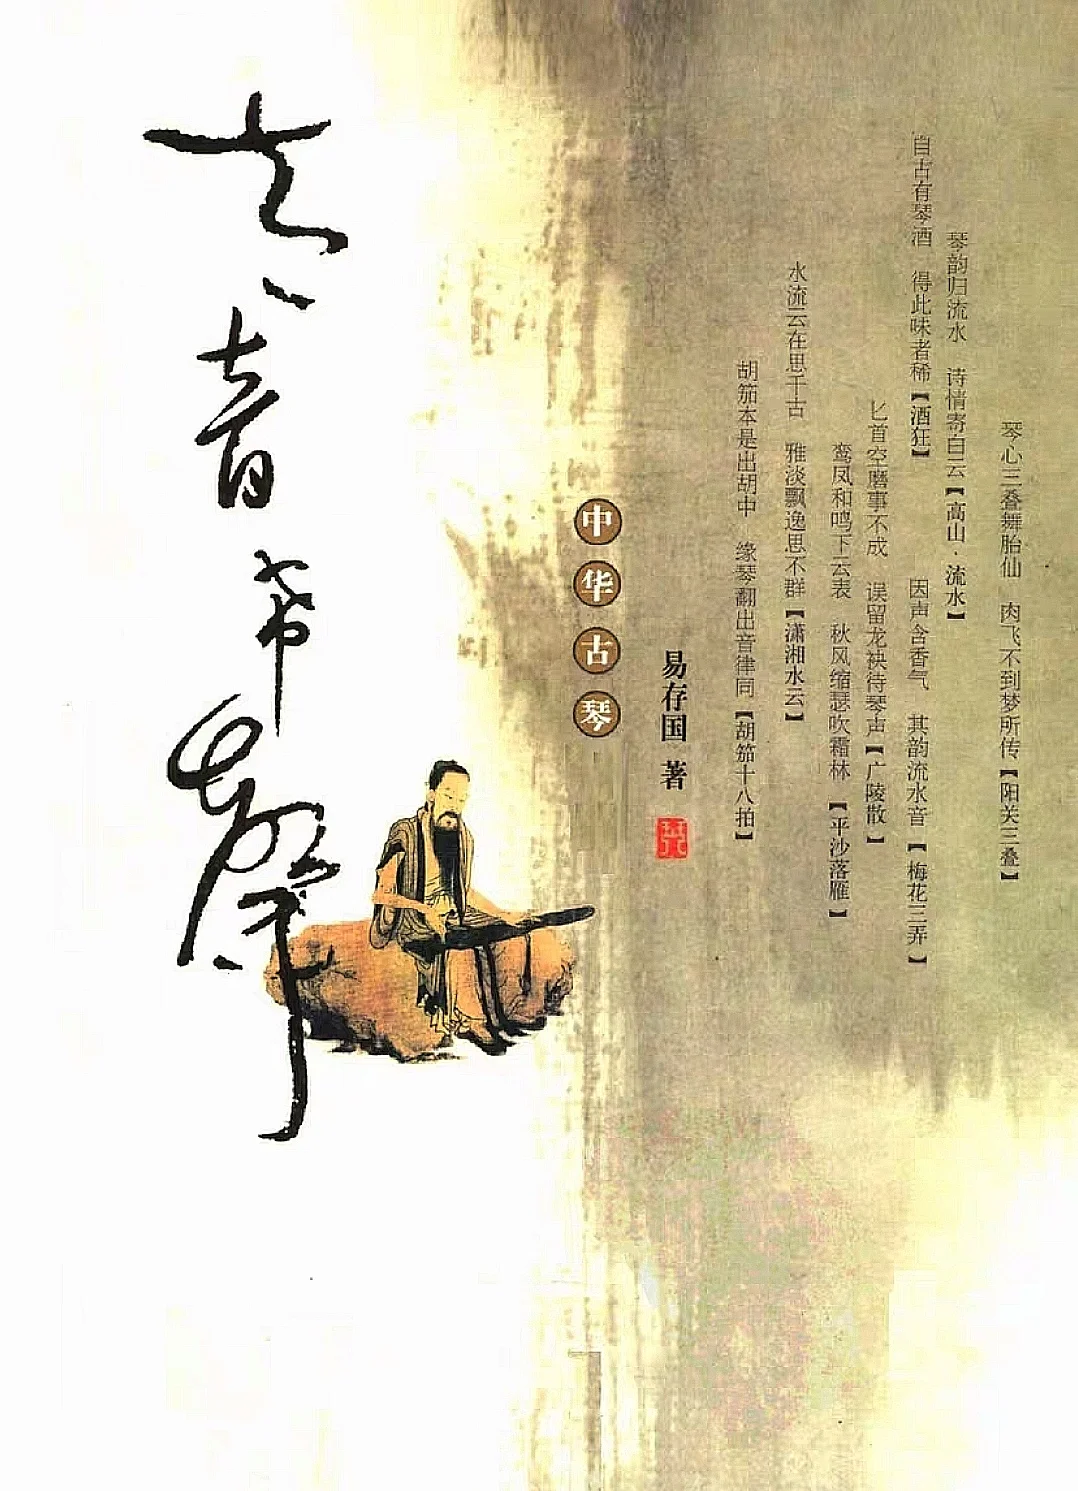 太音希聲
中华古琴
易存国 著
琴心三叠舞胎仙 肉飞不到梦所传【阳关三叠】
琴韵归流水 诗情寄白云【高山·流水】
自古有琴酒 得此味者稀【酒狂】
因声含香气 其韵流水音【梅花三弄】
匕首空磨事不成 误留龙袂待琴声【广陵散】
鸾凤和鸣下云表 秋风缩瑟吹霜林【平沙落雁】
水流云在思千古 雅淡飘逸思不群【潇湘水云】
胡笳本是出胡中 缘琴翻出音律同【胡笳十八拍】